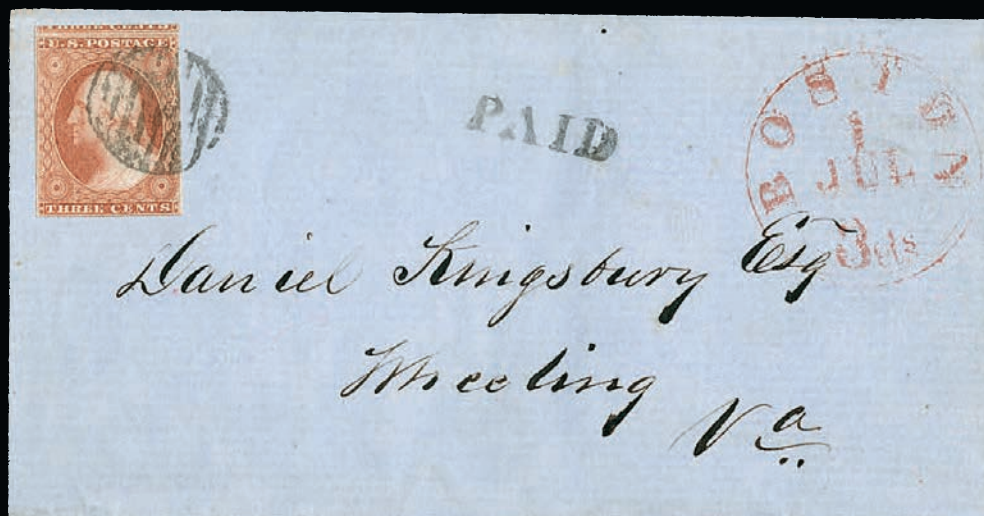 U.S. POSTAGE
THREE CENTS
PAID
BOSTON
1
JUL
3 cts
Daniel Kingsbury Esq
Wheeling
Va